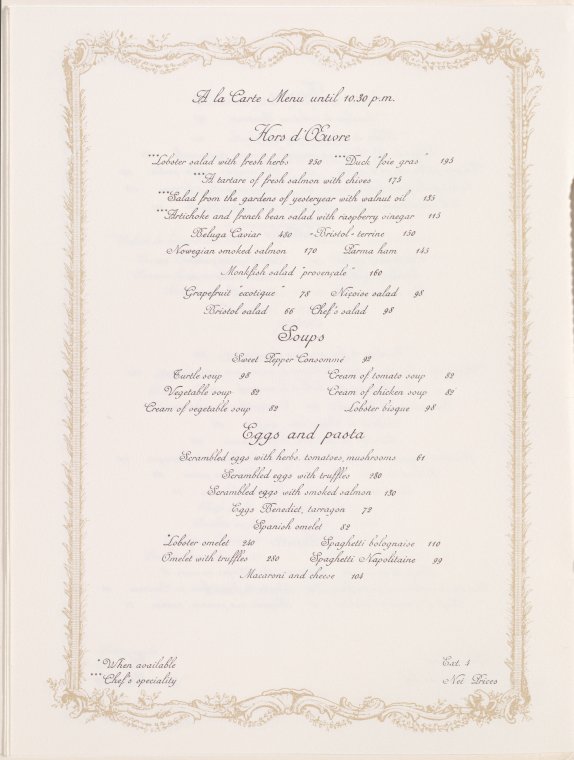 A la Carte Menu until 10.30 p.m.
Hors d'Œuvre
***Lobster salad with fresh herbs 250 ***Duck "foie gras" 195
***A tartare of fresh salmon with chives 175
***Salad from the gardens of yesteryear with walnut oil 135
***Artichoke and french bean salad with raspberry vinegar 115
Beluga Caviar 480 "Bristol" terrine 150
Nowegian smoked salmon 170 Parma ham 145
Monkfish salad "provençale" 160
Grapefruit "exotique" 78 Niçoise salad 98
Bristol salad 66 Chef's salad 98
Soups
Sweet Pepper Consommé 92
Turtle soup 98 Cream of tomato soup 82
Vegetable soup 82 Cream of chicken soup 82
Cream of vegetable soup 82 Lobster bisque 98
Eggs and pasta
Scrambled eggs with herbs, tomatoes, mushrooms 61
Scrambled eggs with truffles 280
Scrambled eggs with smoked salmon 130
Eggs Benedict, tarragon 72
Spanish omelet 82
Lobster omelet 240 Spaghetti bolognaise 110
Omelet with truffles 280 Spaghetti Napolitaine 99
Macaroni and cheese 104
*When available Cat. 4
***Chef's speciality Net Prices